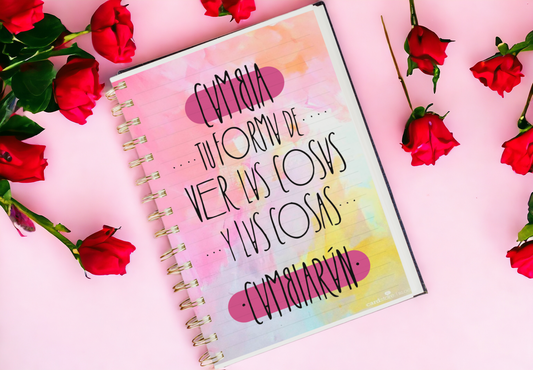 CAMBIA
.....TU FORMA DE.....
VER LAS COSAS
...Y LAS COSAS...
·CAMBIARÁN·